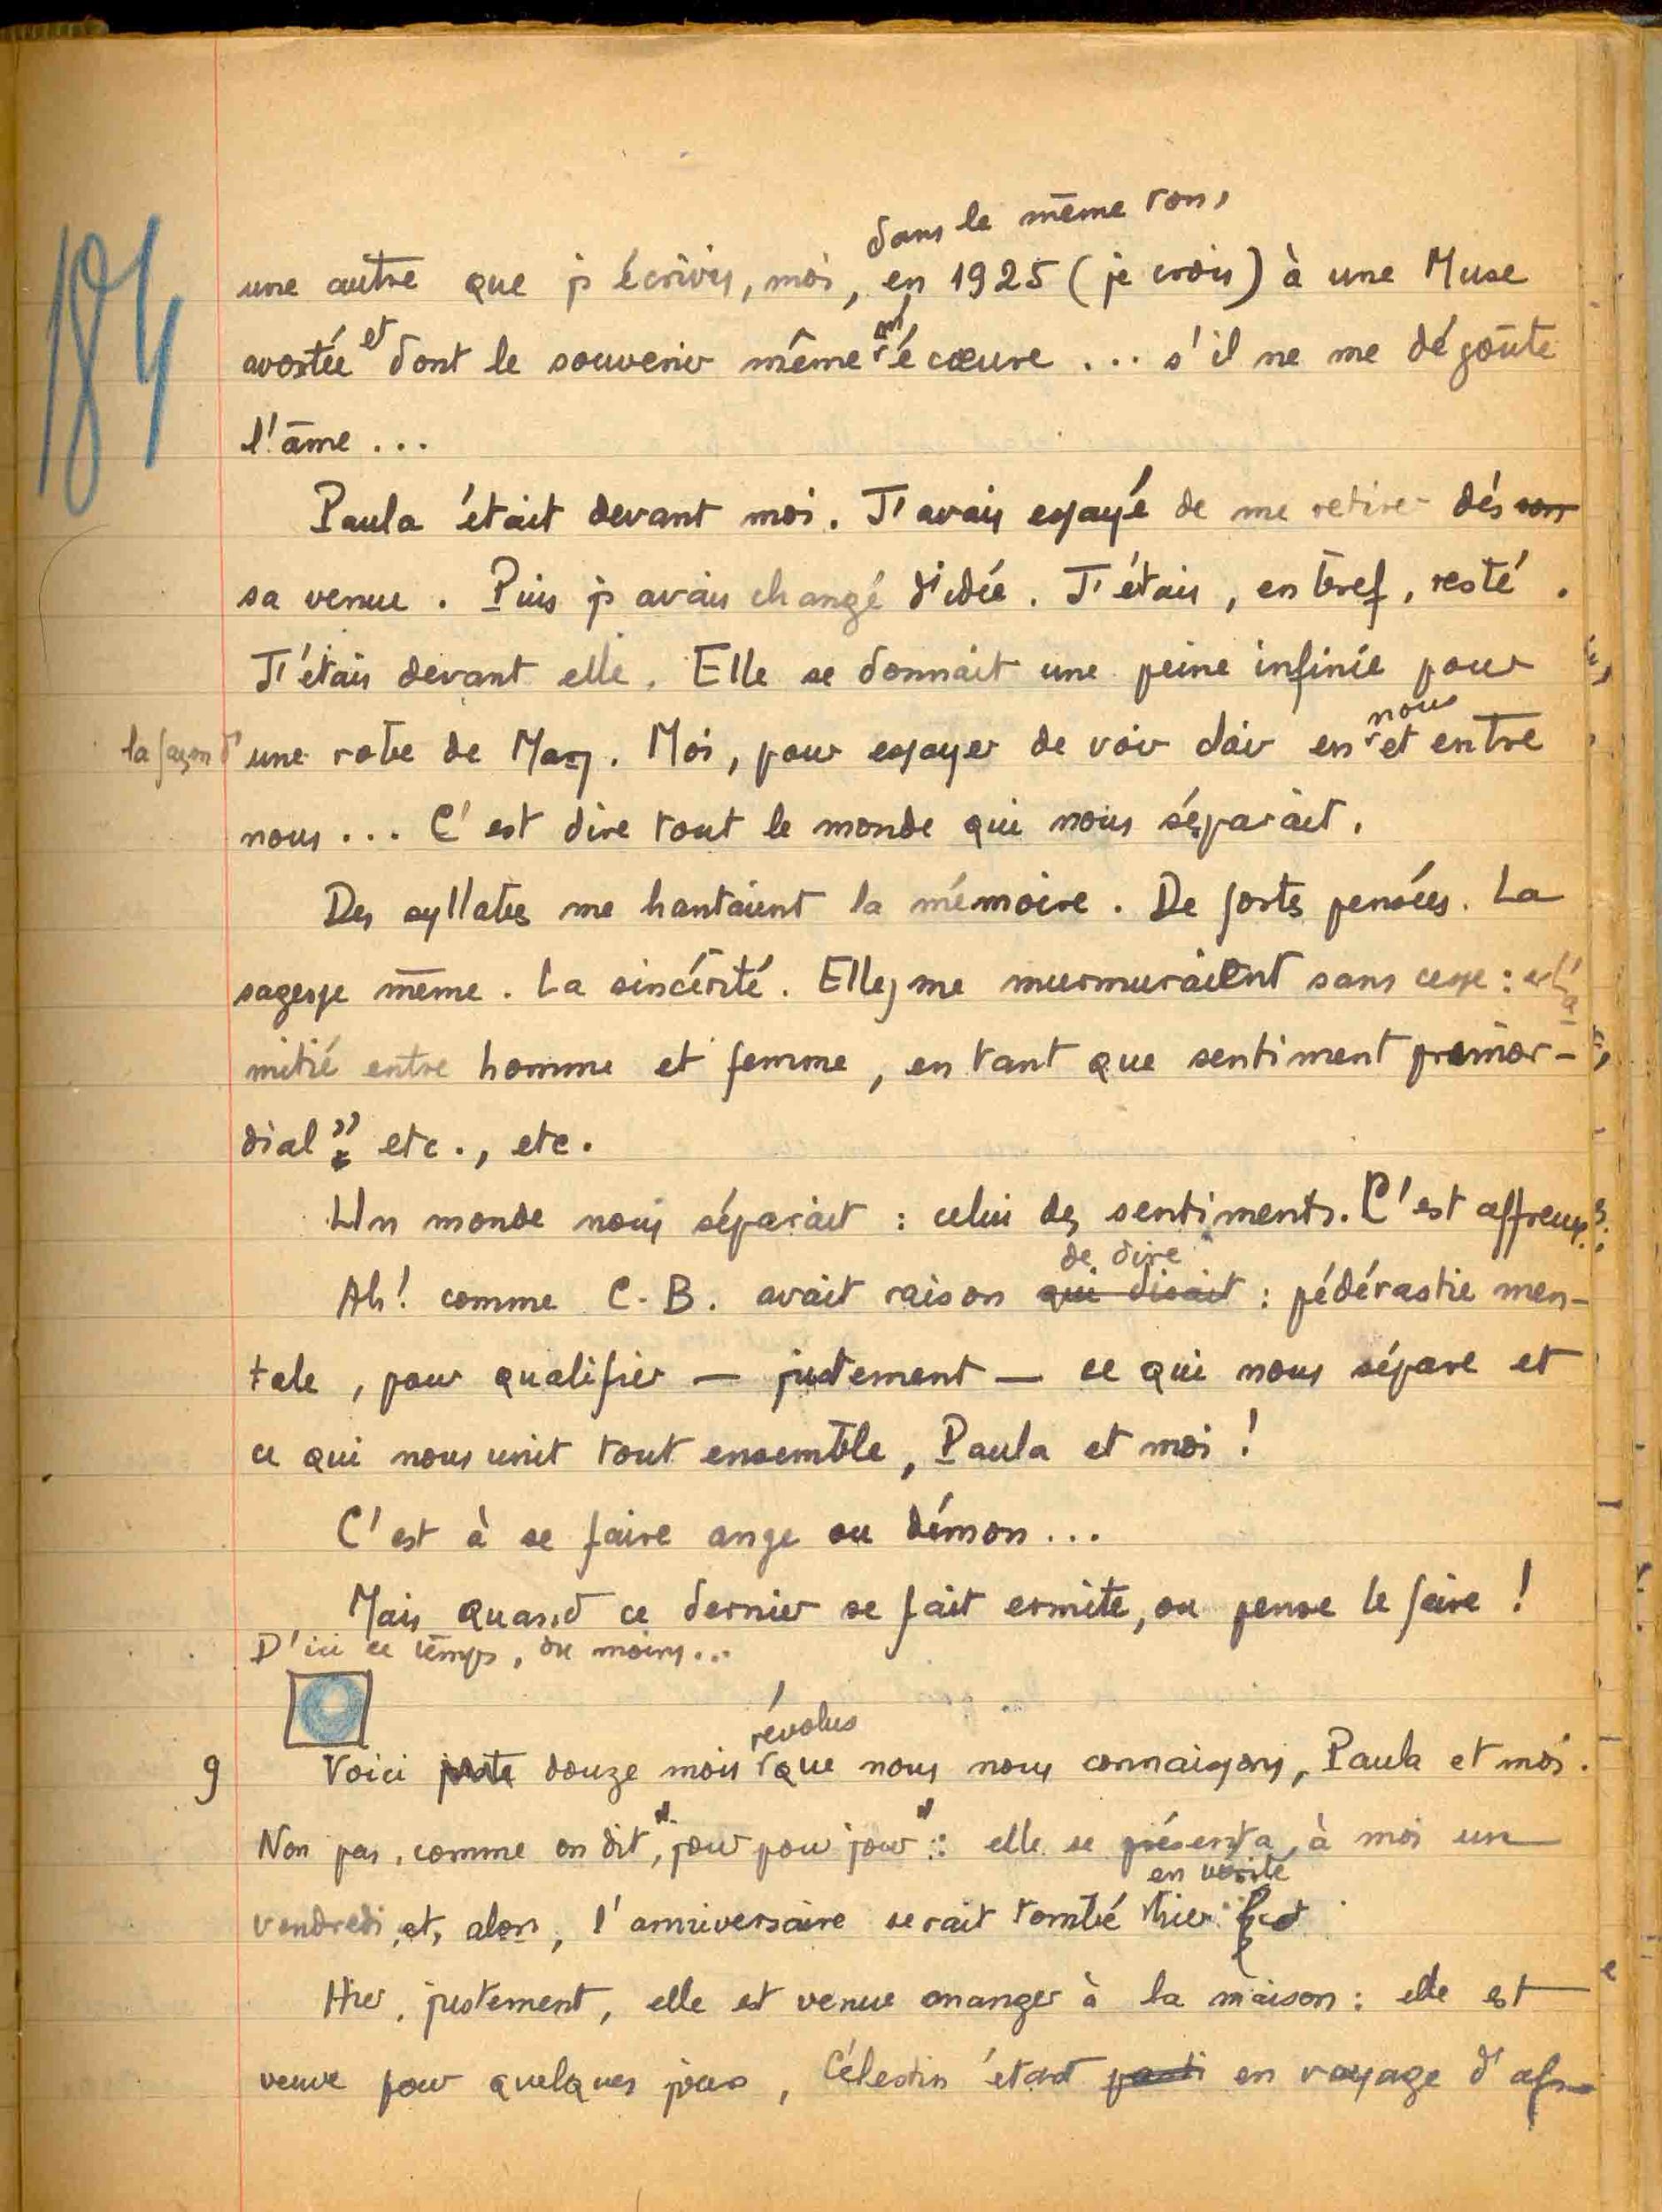 184
dans le même ton,
une autre que j'écrivis, moi, en 1925 (je crois) à une Muse
avortée et dont le souvenir même m'écœure ... s'il ne me dégoûte
l'âme ...
Paula était devant moi. J'avais essayé de me retirer dès son
sa venue. Puis j'avais changé d'idée. J'étais, en bref, resté.
J'étais devant elle. Elle se donnait une peine infinie pour
la façon d'une robe de Mary. Moi, pour essayer de voir clair en nous et entre
nous ... C'est dire tout le monde qui nous séparait.
Des syllabes me hantaient la mémoire. De fortes pensées. La
sagesse même. La sincérité. Elles me murmuraient sans cesse : « L'a-
mitié entre homme et femme, en tant que sentiment primor-
dial » etc., etc.
Un monde nous séparait : celui des sentiments. C'est affreux.
de dire
Ah! comme C. B. avait raison qui disait : pédérastie men-
tale, pour qualifier — justement — ce qui nous sépare et
ce qui nous unit tout ensemble, Paula et moi !
C'est à se faire ange ou démon ...
Mais quand ce dernier se fait ermite, ou pense le faire !
D'ici ce temps, du moins ...
révolus
9 Voici juste douze mois que nous nous connaissons, Paula et moi.
Non pas, comme on dit, "jour pour jour" : elle se présenta à moi un
en vérité
vendredi et, alors, l'anniversaire serait tombé hier
Hier, justement, elle est venue manger à la maison : elle est
veuve pour quelques jours, Célestin étant parti en voyage d'af-